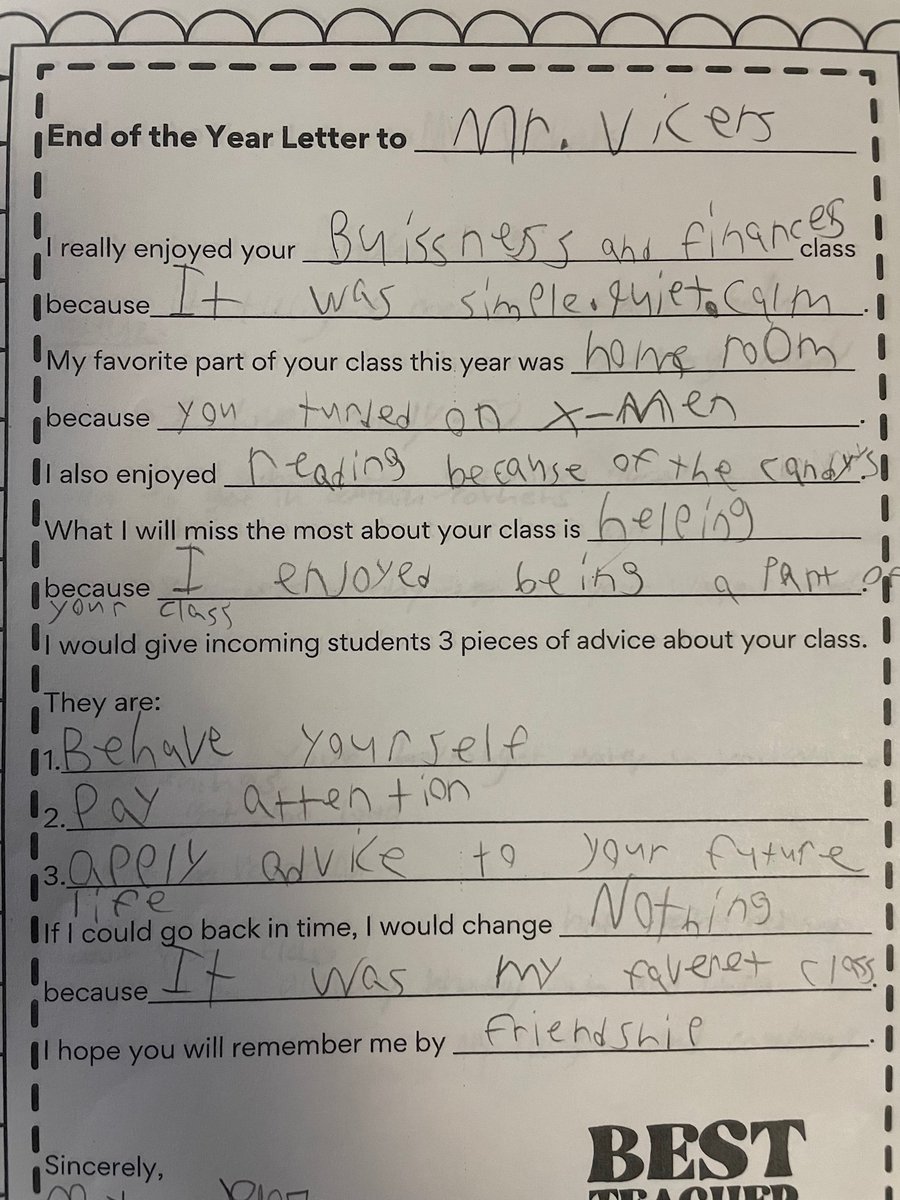 End of the Year Letter to Mr. Vicers
I really enjoyed your Buissness and finances class
because It was simple.quiet.Calm.
My favorite part of your class this year was home room
because you turned on X-Men.
I also enjoyed reading because of the candy's.
What I will miss the most about your class is helping
because I enjoyed being a part of
your class
I would give incoming students 3 pieces of advice about your class.
They are:
1. Behave yourself
2. Pay attention
3. apply advike to your future
life
If I could go back in time, I would change Nothing
because It was my faveret class.
I hope you will remember me by friendship.
Sincerely,
BEST
TEACHER